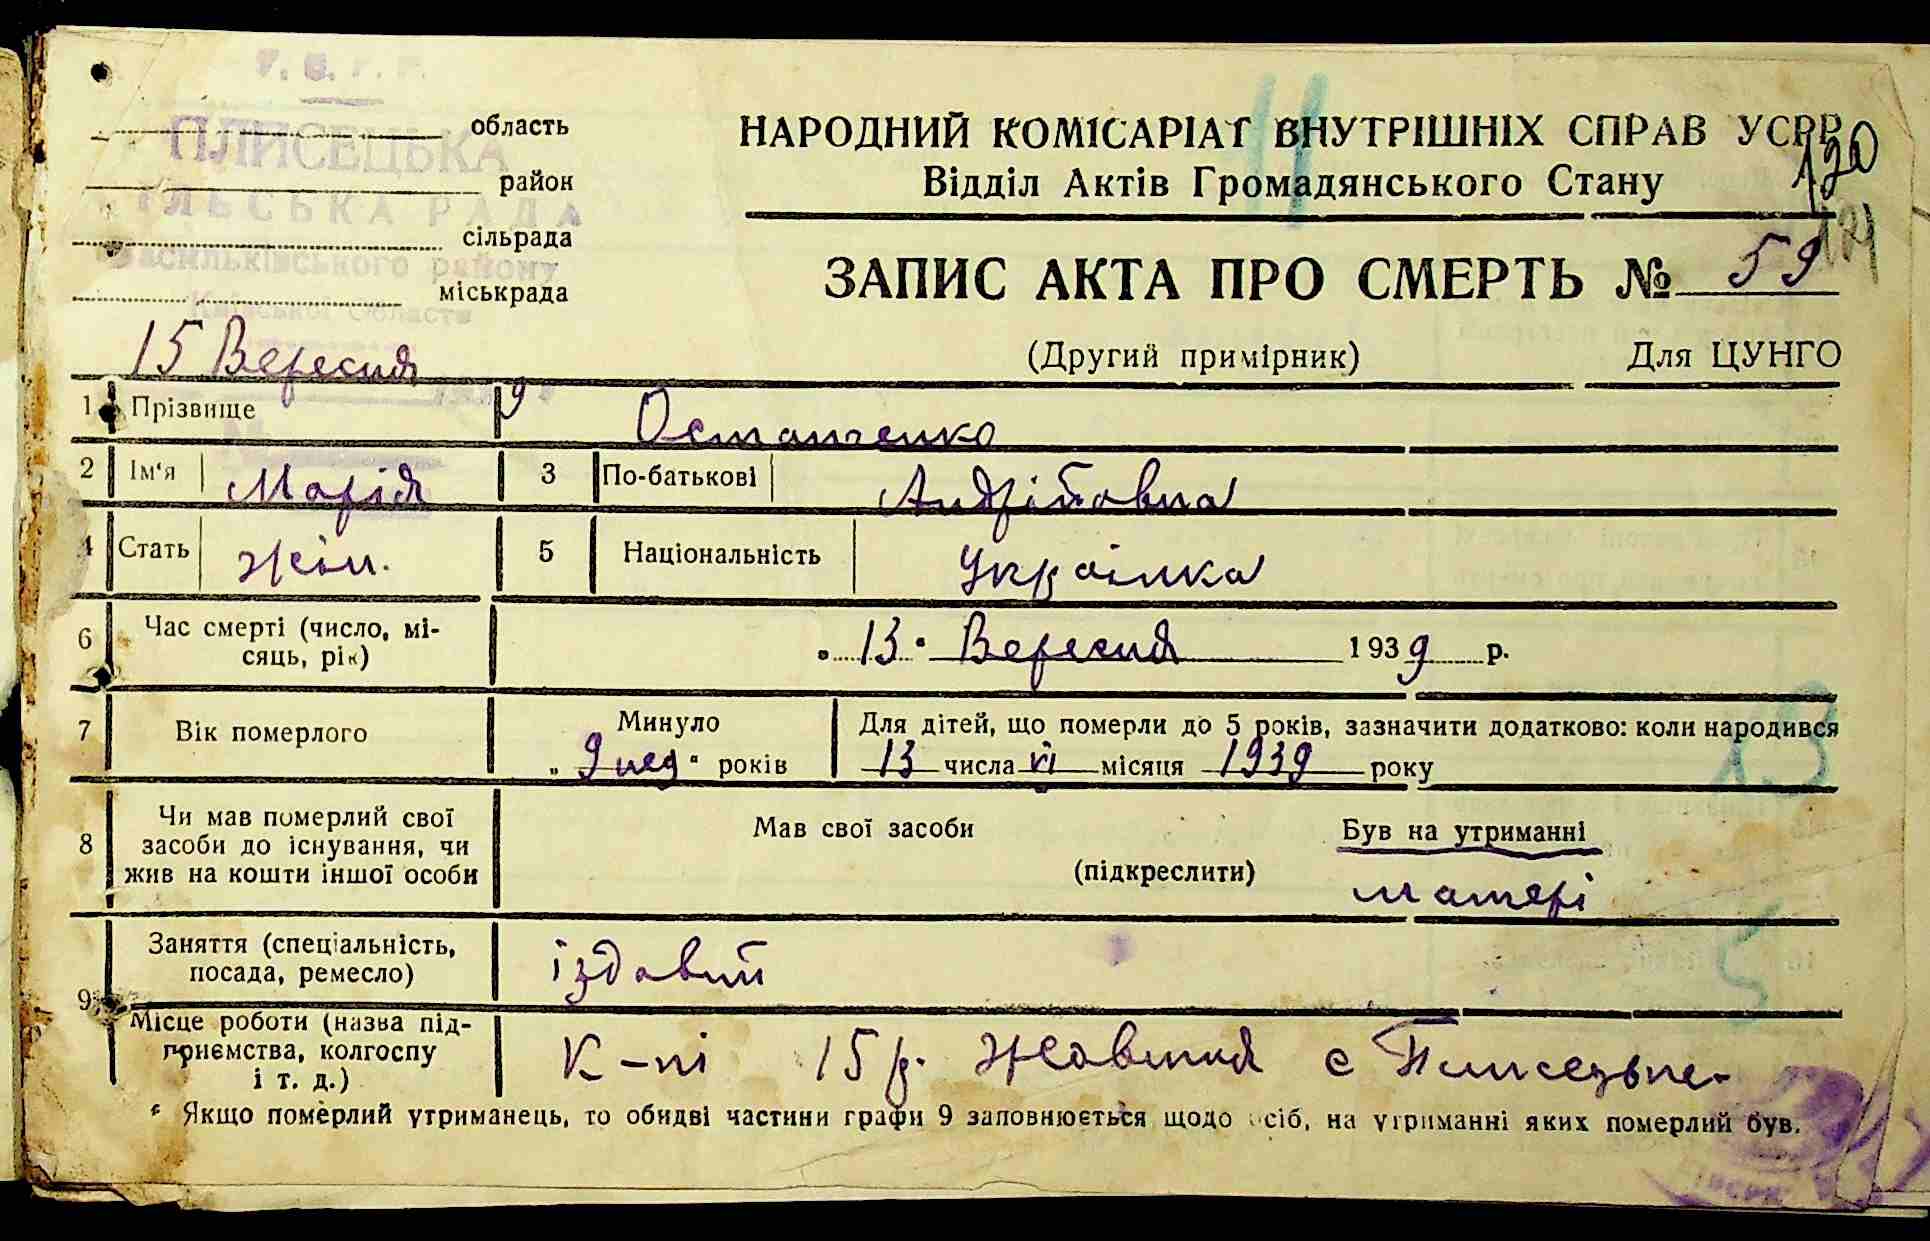 У.С.Р.Р.
ПЛИСЕЦЬКА
СІЛЬСЬКА РАДА
Васильківського району
Київської Области
область
район
сільрада
міськрада
15 Вересня
9
НАРОДНИЙ КОМІСАРІАТ ВНУТРІШНІХ СПРАВ УСРР
120
Відділ Актів Громадянського Стану
ЗАПИС АКТА ПРО СМЕРТЬ № 59
(Другий примірник) Для ЦУНГО
1 Прізвище Остапченко
2 Ім'я Марія 3 По-батькові Андрійовна
4 Стать жін. 5 Національність Українка
6 Час смерті (число, мі-
сяць, рік) „ 13 " Вересня 1939 р.
7 Вік померлого Минуло „ 9 нед " років Для дітей, що померли до 5 років, зазначити додатково: коли народився
13 числа VI місяця 1939 року
8 Чи мав померлий свої
засоби до існування, чи
жив на кошти іншої особи
Мав свої засоби (підкреслити) Був на утриманні
матері
9 Заняття (спеціальність,
посада, ремесло) їздовий
Місце роботи (назва під-
приємства, колгоспу
і т. д.) К-пі 15 р. Жовтня с Плисецьке
* Якщо померлий утриманець, то обидві частини графи 9 заповнюється щодо осіб, на утриманні яких померлий був.